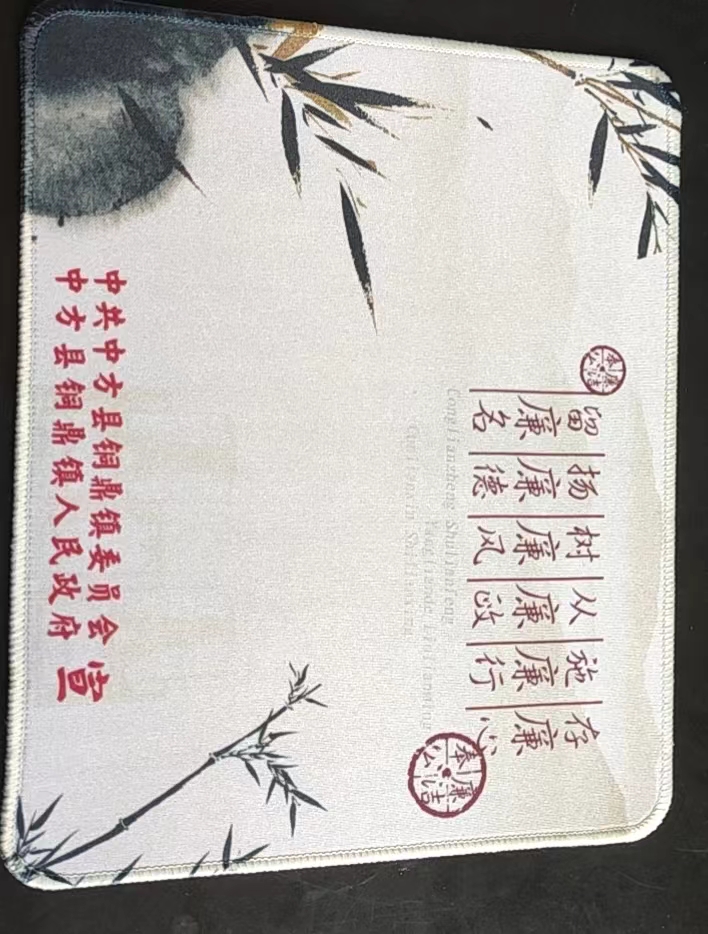 廉洁奉公
存廉心
施廉行
从廉政
树廉风
扬廉德
留廉名
廉洁奉公
Conglianzheng Shulianfeng
Yangliande Liulianming
Cunlianxin Shilianxing
中共中方县铜鼎镇委员会
中方县铜鼎镇人民政府
宣